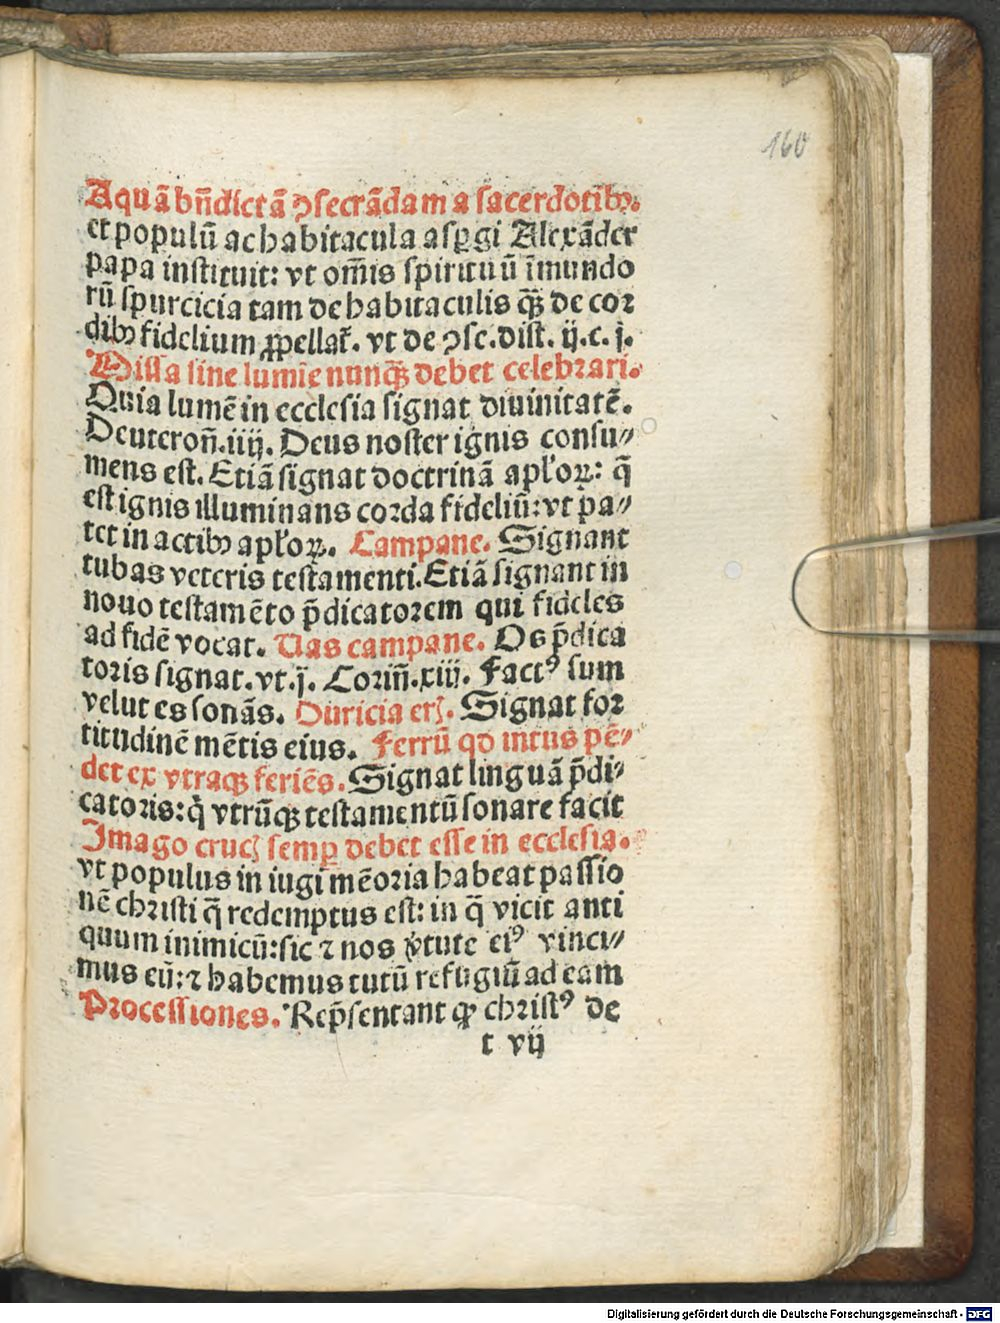 160
Aquā bn̄dictā ↄsecrādam a sacerdotibꝫ.
et populū ac habitacula aspꝑgi Alexāder
papa instituit: vt om̄is spirituū īmundo
rū spurcicia tam de habitaculis qꝫ̄ de cor
dibꝫ fidelium ꝓpellat᷑. vt de ↄsc. dist. ij. c. j.
Missa sine lumīe nunqꝫ̄ debet celebrari.
Quia lumē in ecclesia signat diuinitatē.
Deuteron̄. iiij. Deus noster ignis consu⸗
mens est. Etiā signat doctrinā apl'oꝝ: q̄
est ignis illuminans corda fideliū: vt pa⸗
tet in actibꝫ apl'oꝝ. Campane. Signant
tubas veteris testamenti. Etiā signant in
nouo testamēto p̄dicatorem qui fideles
ad fidē vocat. Uas campane. Os p̄dica
toris signat. vt. j. Corin̄. xiij. Factꝰ sum
velut es sonās. Duricia erꝭ. Signat for
titudinē mētis eius. Ferrū qd intus pē⸗
det ex vtraqꝫ feriēs. Signat linguā p̄di⸗
catoris: q̇ vtrūqꝫ testamentū sonare facit
Imago crucꝭ semꝑ debet esse in ecclesia.
vt populus in iugi mēoria habeat passio
nē christi q̄ redemptus est: in q̄ vicit anti
quum inimicū: sic ⁊ nos v̓tute eiꝰ vinci⸗
mus eū: ⁊ habemus tutū refugiū ad eam
Processiones. Rep̄sentant ꝙ christꝰ de
t vij
Digitalisierung gefördert durch die Deutsche Forschungsgemeinschaft - DFG